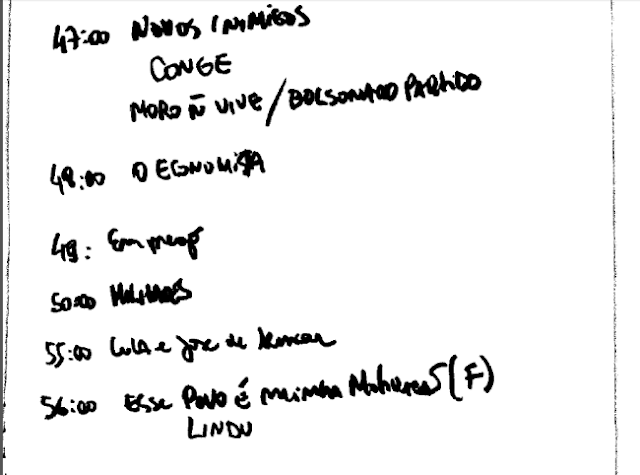 47:00 NOVOS INIMIGOS
CONGE
MORO Ñ VIVE / BOLSONARO PARTIDO
48:00 O ECONOMISTA
49: Emprego
50:00 MILITARES
55:00 LULA e José de Alencar
56:00 ESSE POVO É minha (F)
LINDU